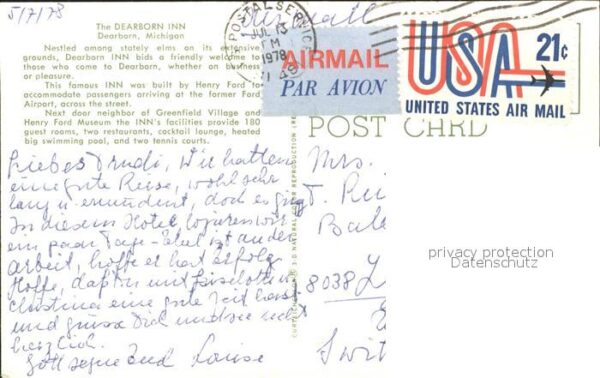 5/7/78
The DEARBORN INN
Dearborn, Michigan
Nestled among stately elms on its extensive
grounds, Dearborn INN bids a friendly welcome to
those who come to Dearborn, whether on business
or pleasure.
This famous INN was built by Henry Ford to
accommodate passengers arriving at the former Ford
Airport, across the street.
Next door neighbor of Greenfield Village and
Henry Ford Museum the INN's facilities provide 180
guest rooms, two restaurants, cocktail lounge, heated
big swimming pool, and two tennis courts.
POSTAL SERVICE
JUL
PM
1978
AIRMAIL
PAR AVION
USA 21¢
UNITED STATES AIR MAIL
POST CARD
Liebes Trudi, Wir hatten
eine gute Reise, wohl sehr
lang u. ermüdend, doch es ging
In diesem Hotel logieren wir
ein paar Tage
arbeit, hoffe er hat Erfolg
Hoffe, dass du mit Liselotte
Christina eine gute Zeit hast
und grüsse Dich und sie recht
herzlich.
Gott segne Euch Louise
Mrs.
8038
privacy protection
Datenschutz